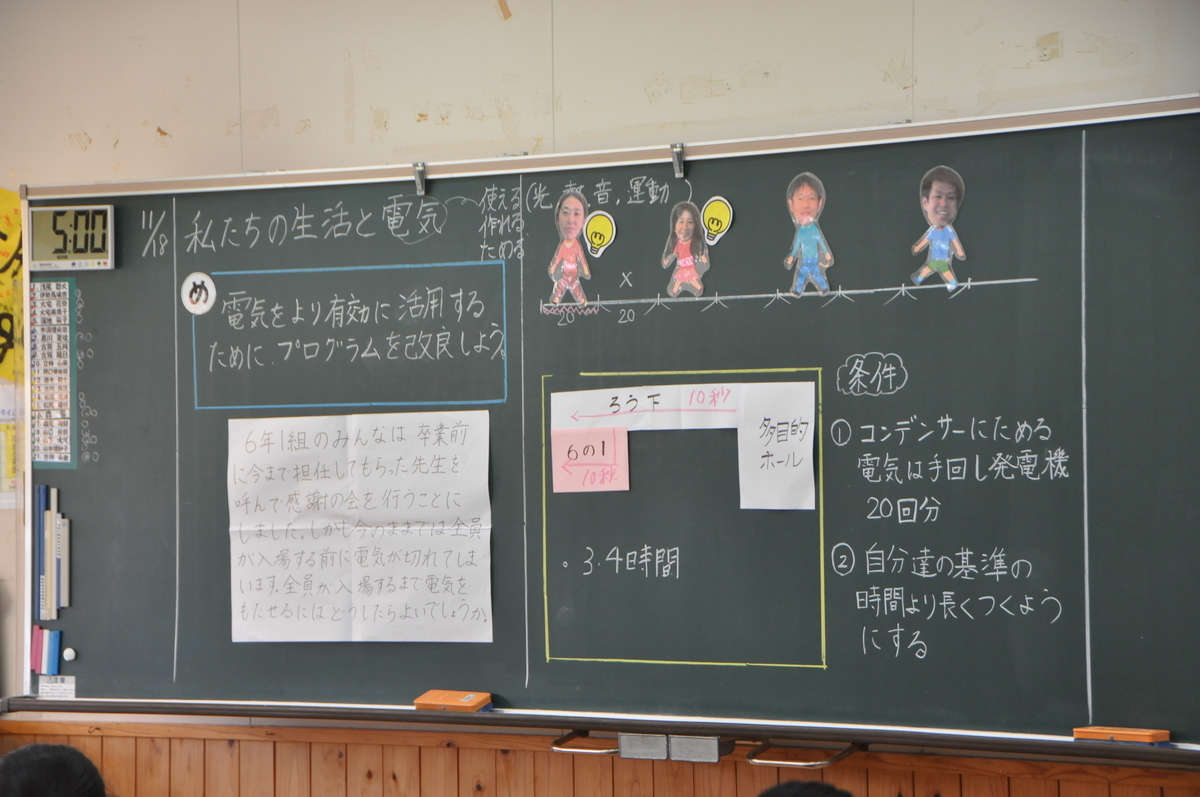 5:00
11/18
私たちの生活と電気
使える
作れる
ためる
(光、熱、音、運動)
め
電気をより有効に活用する
ために、プログラムを改良しよう。
6年1組のみんなは卒業前
に今まで担任してもらった先生を
呼んで感謝の会を行うことに
しました。しかし今のままでは全員
が入場する前に電気が切れてしま
います。全員が入場するまで電気を
もたせるにはどうしたらよいでしょうか。
×
20
20
ろう下 10秒
6の1
10秒
多目的
ホール
・3.4時間
条件
① コンデンサーにためる
電気は手回し発電機
20回分
② 自分達の基準の
時間より長くつくよう
にする